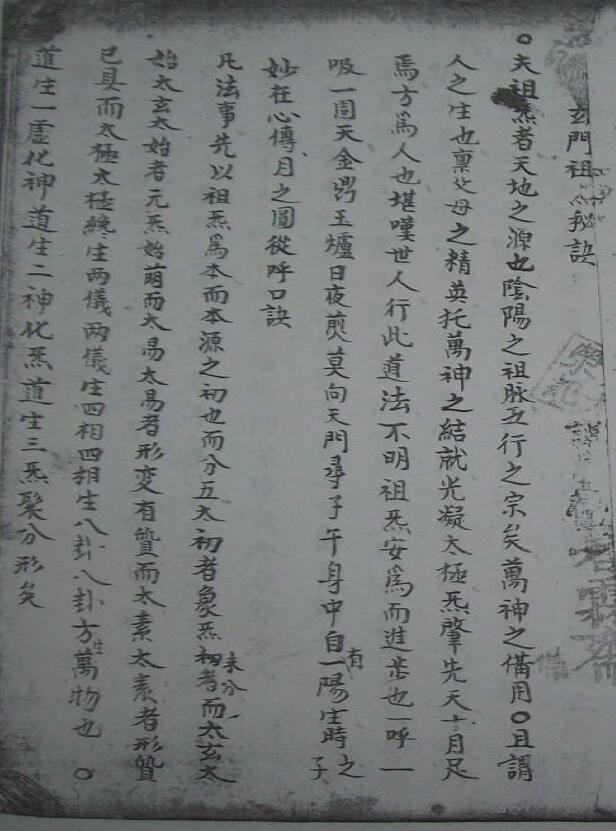 玄門祖炁秘訣
○夫祖炁者天地之源也陰陽之祖脉五行之宗矣萬神之俻用○且謂
人之生也禀父母之精英托萬神之結就光凝太極炁肇先天十月足
焉方爲人也堪嘆世人行此道法不明祖炁安爲而進步也一呼一
吸一周天金鼎玉爐日夜煎莫向天門尋子午身中自有一陽生時之子
妙在心傳月之圓從呼口訣
凡法事先以祖炁爲本而本源之初也而分五太初者象炁未分初者而太玄太
始太玄太始者元炁始萌而太易太易者形变有質而太素太素者形質
已具而太極太極縂生两儀两儀生四相四相生八卦八卦方生萬物也○
道生一虚化神道生二神化炁道生三炁聚分形矣